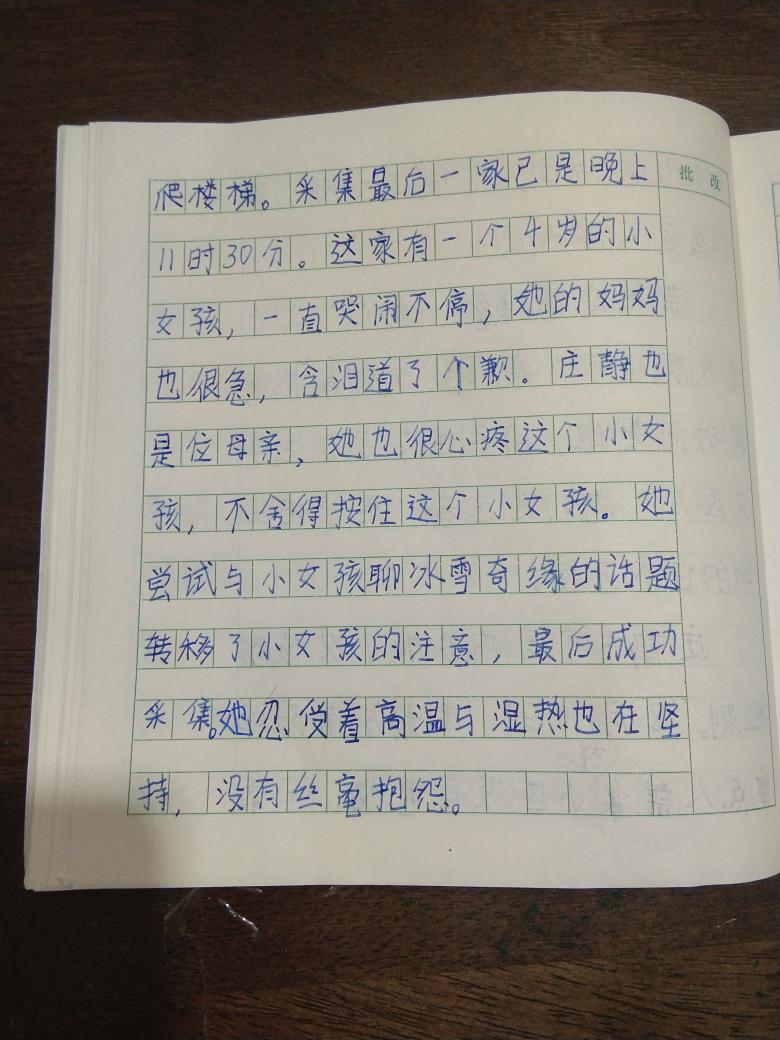 爬楼梯。采集最后一家已是晚上
批改
11时30分。这家有一个4岁的小
女孩，一直哭闹不停，她的妈妈
也很急，含泪道了个歉。庄静也
是位母亲，她也很心疼这个小女
孩，不舍得按住这个小女孩。她
尝试与小女孩聊冰雪奇缘的话题
转移了小女孩的注意，最后成功
采集。她忍受着高温与湿热也在坚
持，没有丝毫抱怨。